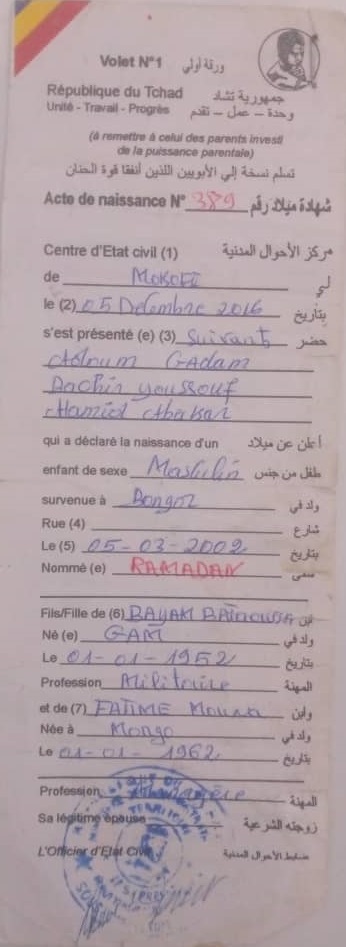 Volet N°1 ورقة أولي
République du Tchad جمهورية تشاد
Unité - Travail - Progrès وحدة – عمل – تقدم
(à remettre à celui des parents investi
de la puissance parentale)
تسلم نسخة إلي الأبويين اللذين أنفقا قوة الحنان
Acte de naissance N° 389 شهادة ميلاد رقم
Centre d'Etat civil (1) مركز الأحوال المدنية
de لي
le (2) 05 Décembre 2016 بتاريخ
s'est présenté (e) (3) Suivant حضر
Gadam
Dachir Youssouf
Hamid Abakar
qui a déclaré la naissance d'un أعلن عن ميلاد
enfant de sexe Masculin طفل من جنس
survenue à Bongor ولد في
Rue (4) شارع
Le (5) 05-03-2002 بتاريخ
Nommé (e) RAMADAN سمى
Fils/Fille de (6) ابن
Né (e) GAM ولد في
Le 01-01-1952 بتاريخ
Profession Militaire المهنة
et de (7) FATIME Mouna وابن
Née à Mongo ولد في
Le 01-01-1962 بتاريخ
Profession Ménagère المهنة
Sa légitime épouse زوجته الشرعية
L'Officier d'Etat Civil ضابط الأحوال المدنية